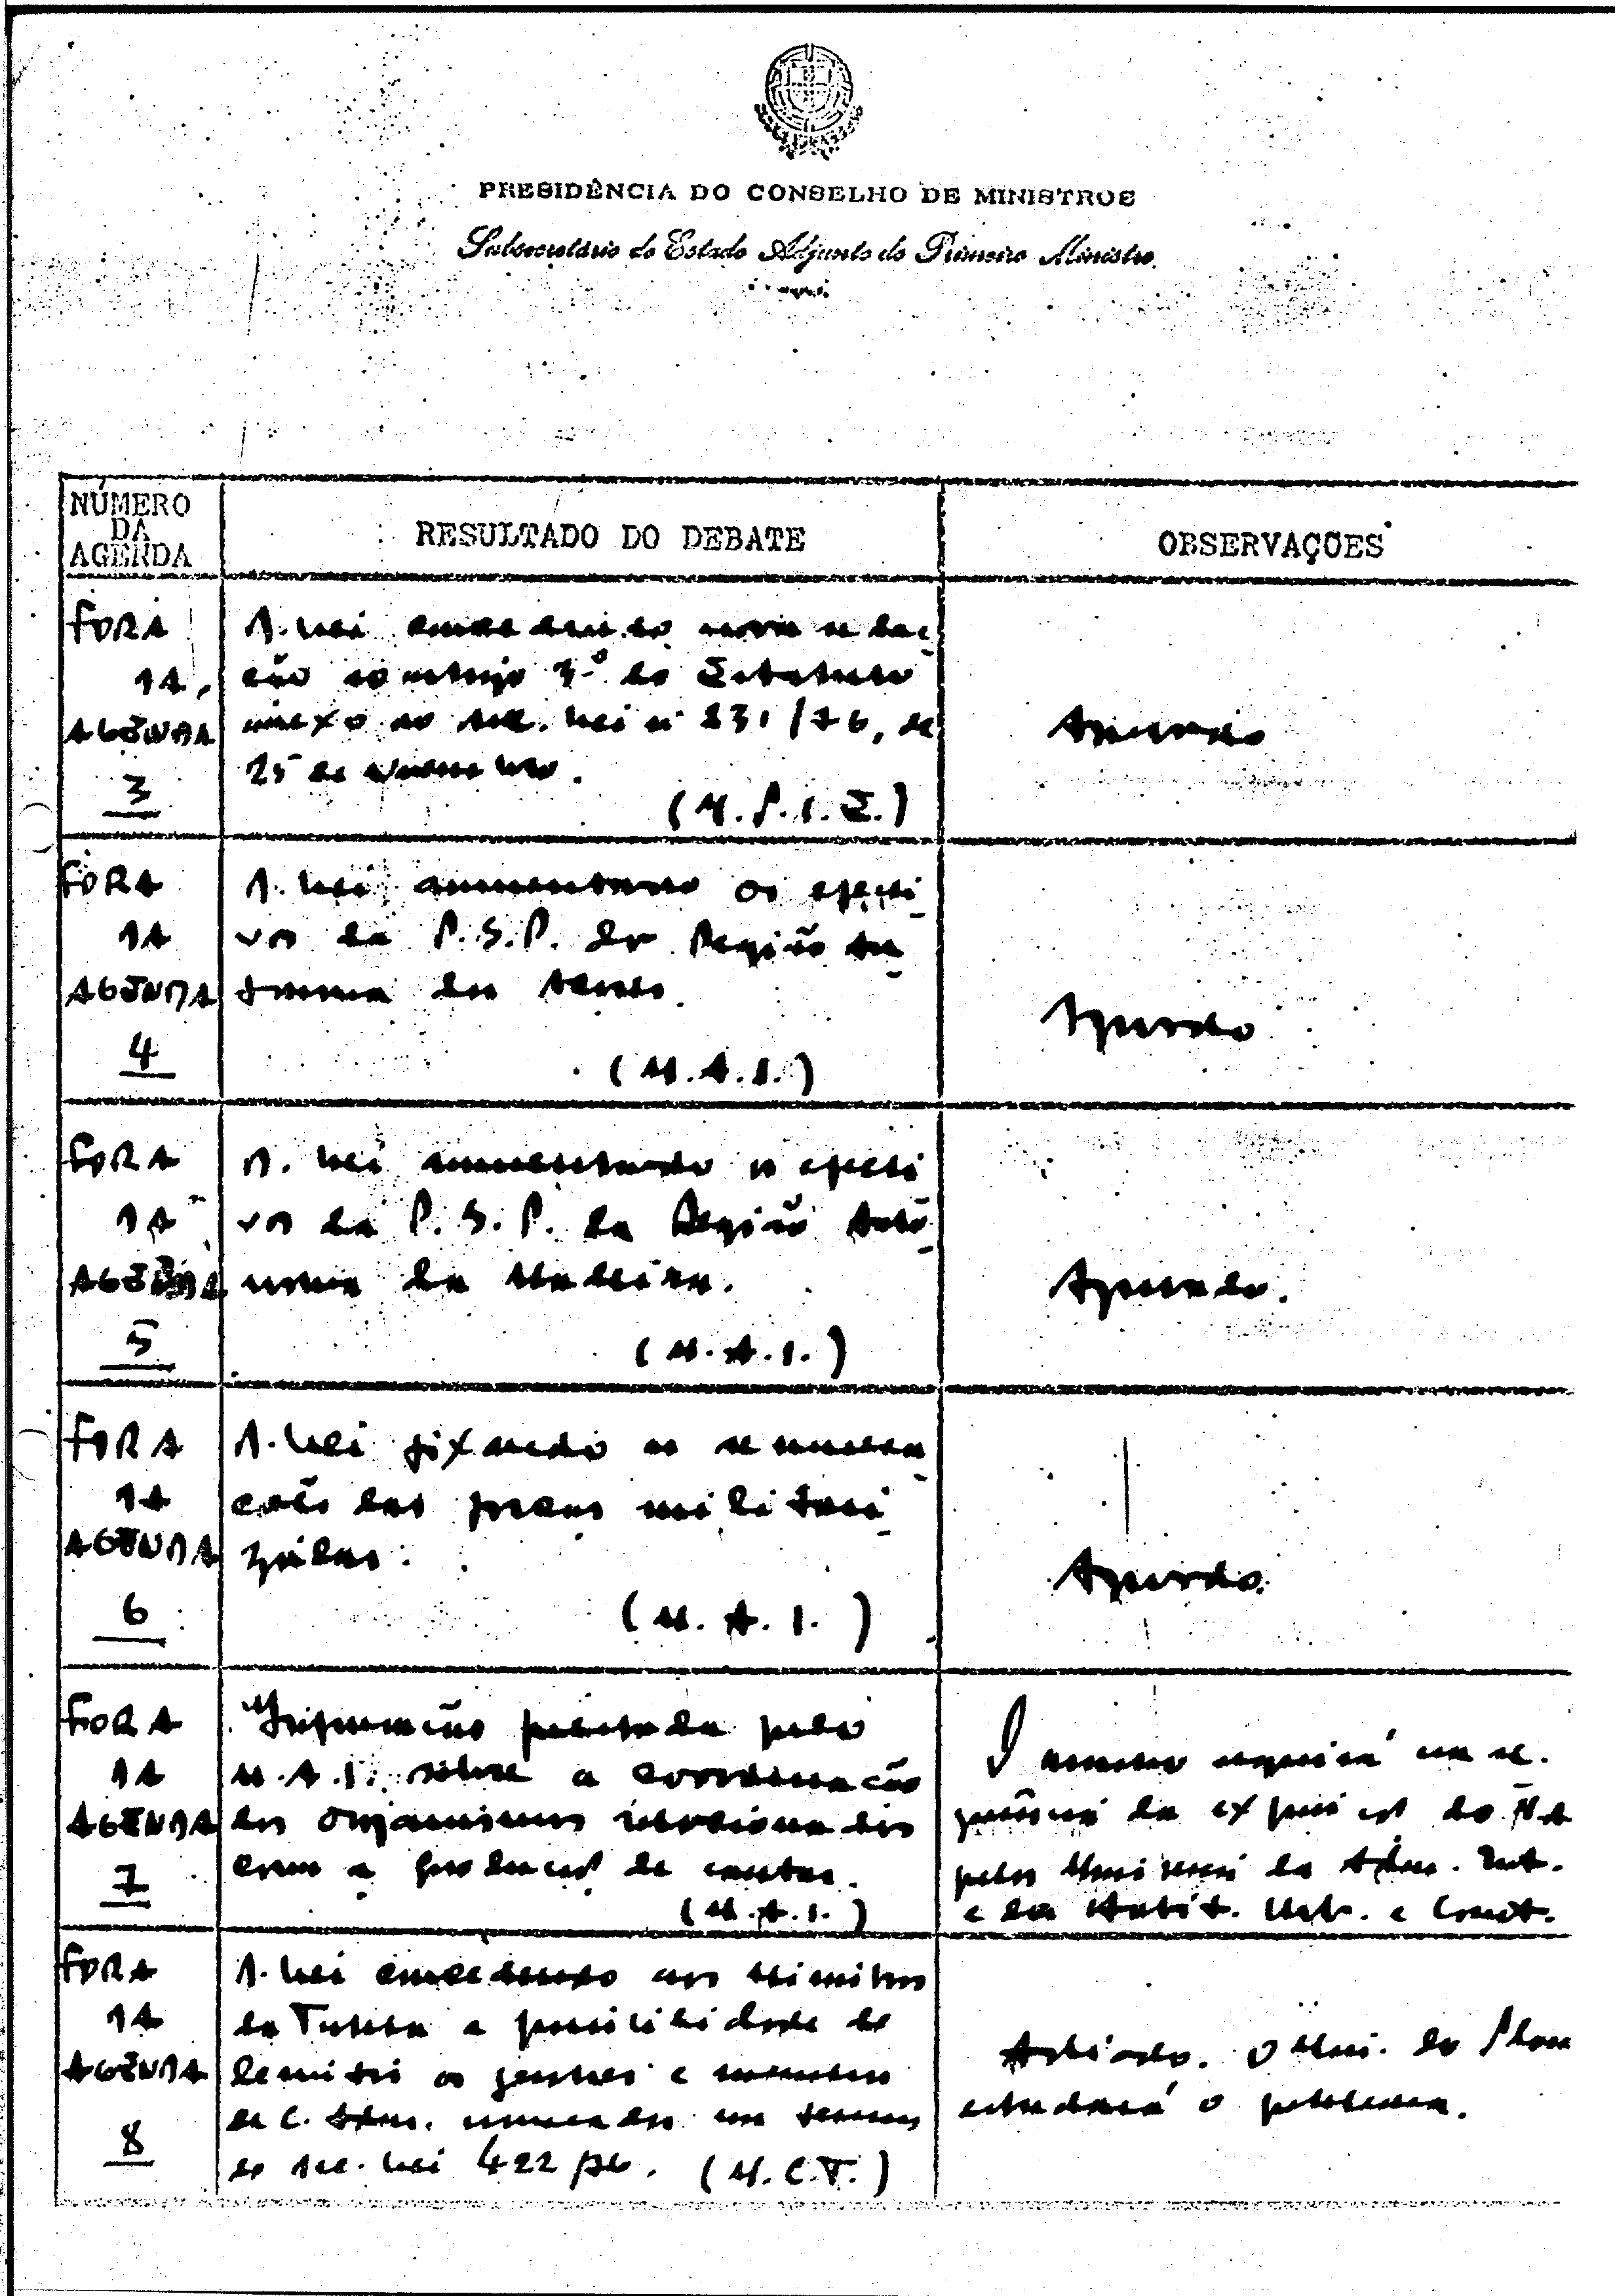 PRESIDÊNCIA DO CONSELHO DE MINISTROS
Subsecretário de Estado Adjunto do Primeiro Ministro
NÚMERO
DA
AGENDA
RESULTADO DO DEBATE
OBSERVAÇÕES
FORA
DA
AGENDA
3
D. Lei concedendo nova redac-
ção ao artigo 3º do Estatuto
anexo ao Dec. Lei nº 831/76, de
25 de Novembro.
(M.P.I.E.)
Aprovado
FORA
DA
AGENDA
4
D. Lei aumentando os efecti-
vos da P.S.P. da Região Au-
tónoma dos Açores.
(M.A.I.)
Aprovado
FORA
DA
AGENDA
5
D. Lei aumentando os efecti
vos da P.S.P. da Região Autó-
noma da Madeira.
(M.A.I.)
Aprovado.
FORA
DA
AGENDA
6
D. Lei fixando as remunera-
ções das praças militari-
zadas.
(M.A.I.)
Aprovado.
FORA
DA
AGENDA
7
Informação prestada pelo
M.A.I. sobre a coordenação
dos organismos relacionados
com a produção de cartas.
(M.A.I.)
O assunto seguirá na se-
quência da exposição do
pelos Ministérios da Adm. Int.
e da Habit. Urb. e Const.
FORA
DA
AGENDA
8
D. Lei concedendo aos Ministros
da Tutela a possibilidade de
demitir os gestores e membros
de C. Adm. nomeados nos termos
do Dec. Lei 422/76. (M.C.T.)
Adiado. O Min. do Plano
estudará o problema.